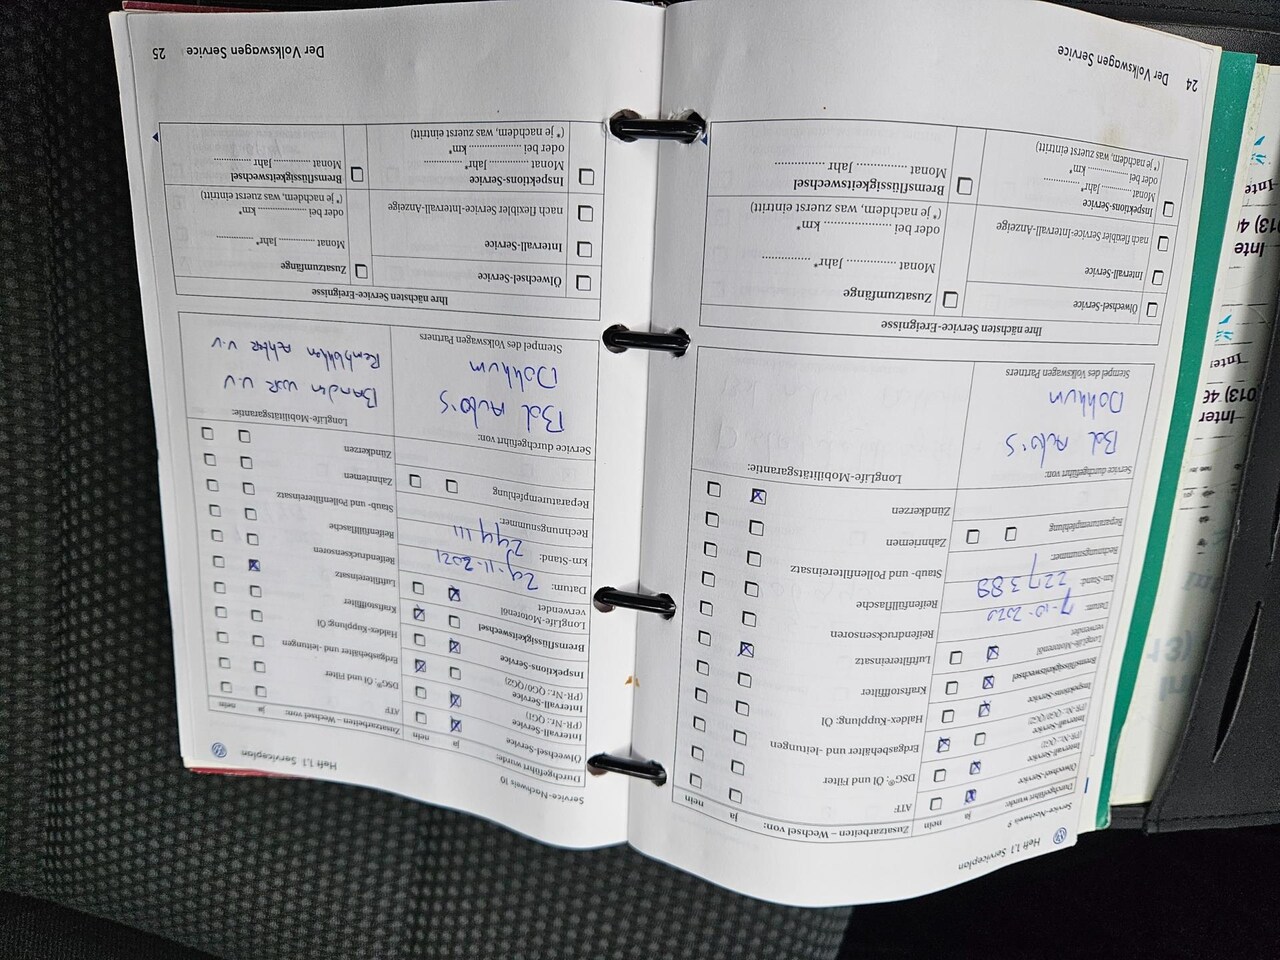 Heft 1.1 Serviceplan
Service-Nachweis 9
Durchgeführt wurde:
ja nein
Ölwechsel-Service
Intervall-Service
(PR-Nr.: QG1)
Intervall-Service
(PR-Nr.: QG0/QG2)
Inspektions-Service
Bremsflüssigkeitswechsel
LongLife-Motorenöl
verwendet
Datum:
7-10-2020
km-Stand:
227389
Rechnungsnummer:
Reparaturempfehlung
Service durchgeführt von:
Bd Auto's
Dokkum
Stempel des Volkswagen Partners
Zusatzarbeiten – Wechsel von:
ja nein
ATF
DSG®: Öl und Filter
Erdgasbehälter und -leitungen
Haldex-Kupplung: Öl
Kraftstofffilter
Luftfiltereinsatz
Reifendrucksensoren
Reifenfüllflasche
Staub- und Pollenfiltereinsatz
Zahnriemen
Zündkerzen
LongLife-Mobilitätsgarantie:
Ihre nächsten Service-Ereignisse
Ölwechsel-Service
Intervall-Service
nach flexibler Service-Intervall-Anzeige
Inspektions-Service
Monat ............ Jahr* ............
oder bei ............ km*
(*je nachdem, was zuerst eintritt)
Zusatzumfänge
Monat ............ Jahr* ............
oder bei ............ km*
(*je nachdem, was zuerst eintritt)
Bremsflüssigkeitswechsel
Monat ............ Jahr ............
24 Der Volkswagen Service
Heft 1.1 Serviceplan
Service-Nachweis 10
Durchgeführt wurde:
ja nein
Ölwechsel-Service
Intervall-Service
(PR-Nr.: QG1)
Intervall-Service
(PR-Nr.: QG0/QG2)
Inspektions-Service
Bremsflüssigkeitswechsel
LongLife-Motorenöl
verwendet
Datum:
29-11-2021
km-Stand:
244111
Rechnungsnummer:
Reparaturempfehlung
Service durchgeführt von:
Bd Auto's
Dokkum
Stempel des Volkswagen Partners
Zusatzarbeiten – Wechsel von:
ja nein
ATF
DSG®: Öl und Filter
Erdgasbehälter und -leitungen
Haldex-Kupplung: Öl
Kraftstofffilter
Luftfiltereinsatz
Reifendrucksensoren
Reifenfüllflasche
Staub- und Pollenfiltereinsatz
Zahnriemen
Zündkerzen
LongLife-Mobilitätsgarantie:
Banden voor v.v
Remblokken Achter v.v
Ihre nächsten Service-Ereignisse
Ölwechsel-Service
Intervall-Service
nach flexibler Service-Intervall-Anzeige
Inspektions-Service
Monat ............ Jahr* ............
oder bei ............ km*
(*je nachdem, was zuerst eintritt)
Zusatzumfänge
Monat ............ Jahr* ............
oder bei ............ km*
(*je nachdem, was zuerst eintritt)
Bremsflüssigkeitswechsel
Monat ............ Jahr ............
Der Volkswagen Service 25